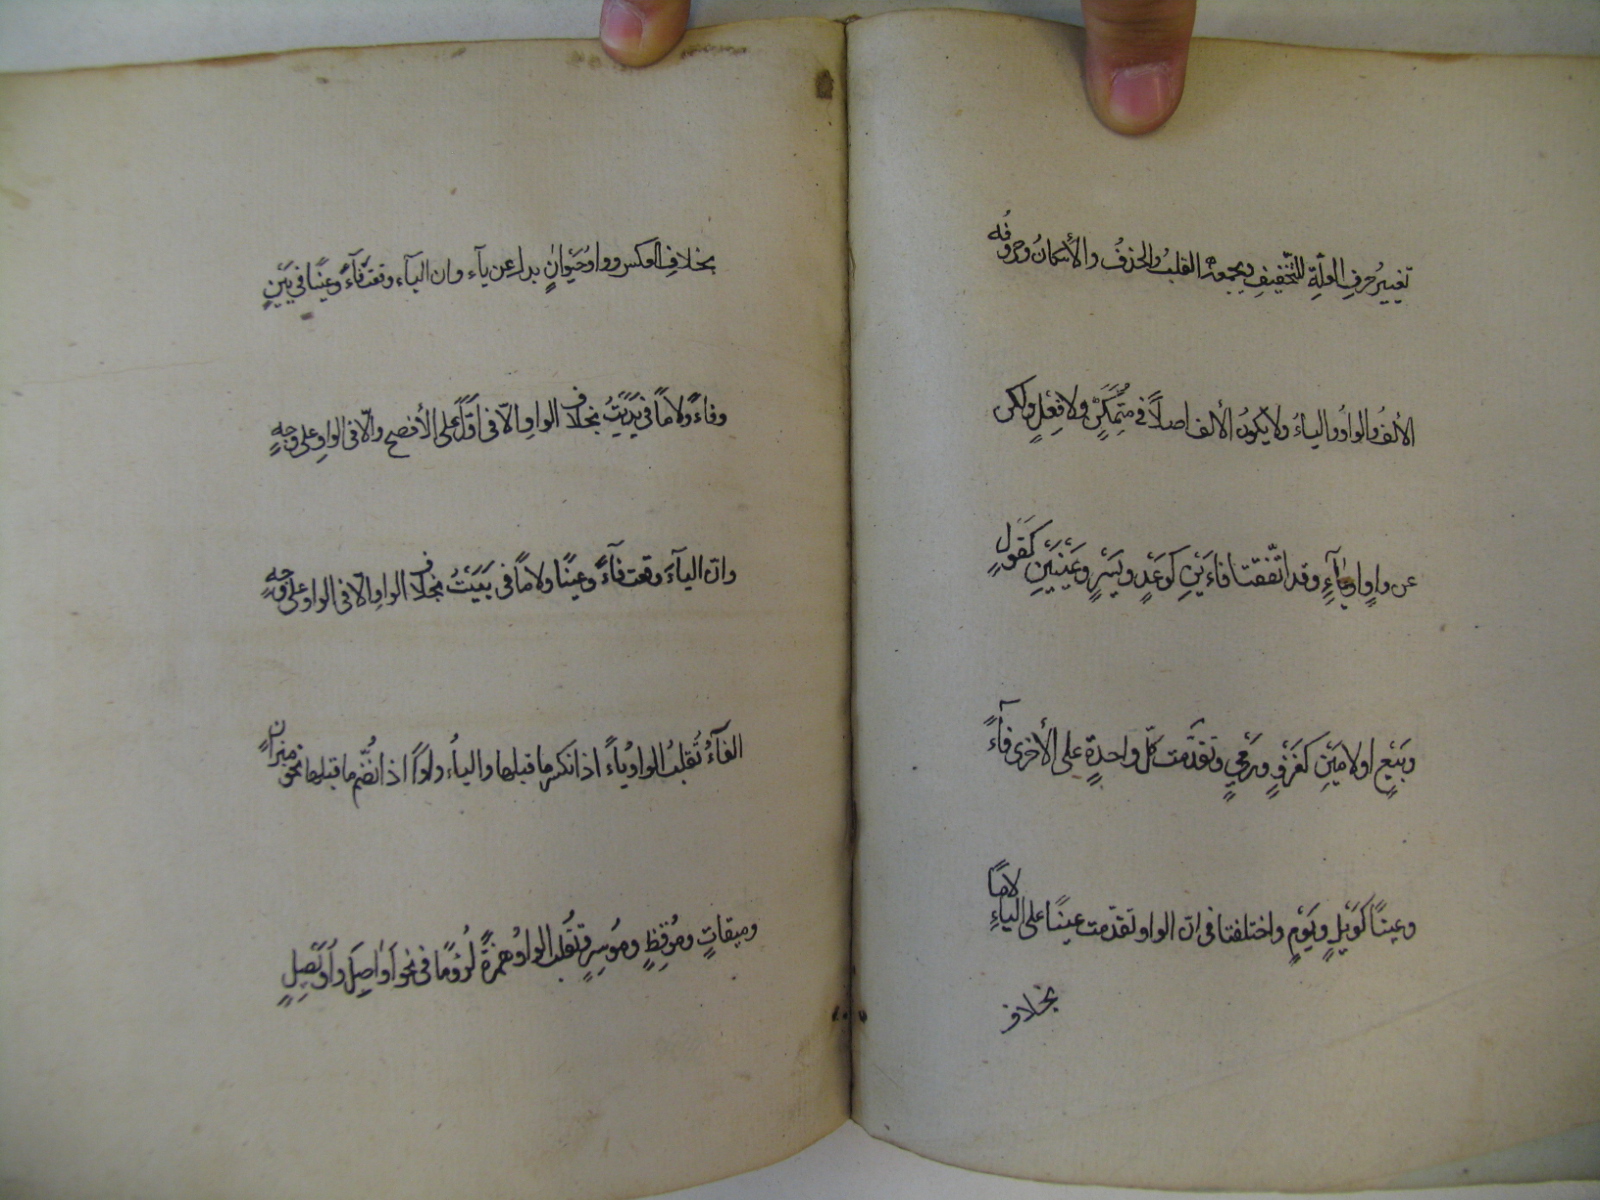 تغييرُ حرفِ العلّةِ للتّخفيفِ ويجمعُهُ القلبُ والحذفُ والأسكانُ وحروفُه
الألفُ والواوُ والياءُ ولا يكونُ الألف اصلاً فى متمكّنٍ ولا فِعْلٍ ولكن
عن واوٍ او ياءٍ وقد اتّفقتا فاءَيْنِ كوَعْدٍ ويُسْرٍ وعَيْنَيْنِ كقَوْلٍ
وبَيْعٍ او لامَيْنِ كغَزْوٍ ورَمْىٍ وتقدَّمت كلّ واحدةٍ على الأخرى فآءً
وعينًا كوَيْلٍ ويَوْمٍ واختلفتا فى انّ الواو تقدّمت عينًا على الياءِ لامًا
بخلاف
بخلافِ العكس وواوُ حَيَوانٍ بدل عن يآء وان اليآء وقعت فآءً وعينًا فى يَيَنٍ
وفاءً ولامًا فى يَدَيْتُ بخلاف الواوِ الّا فى اَوَّل على الأفصح والّا فى الواوِ على وجهٍ
وانّ اليآءَ وقعت فآءً وعينًا ولامًا فى يَيَّيْتُ بخلاف الواو الّا فى الواو على وجهٍ
الفآءُ تُقلبُ الواوُ ياءً اذا انكسر ما قبلها والياءُ واوًا اذا انضُمّ ما قبلها نحو ميزانٍ
وميقاتٍ ومُوقِظٍ ومُوسِرٍ وتُقلبُ الواوُ همزةً لزُومًا فى نحو اَواصِلَ واُوَيْصِلٍ